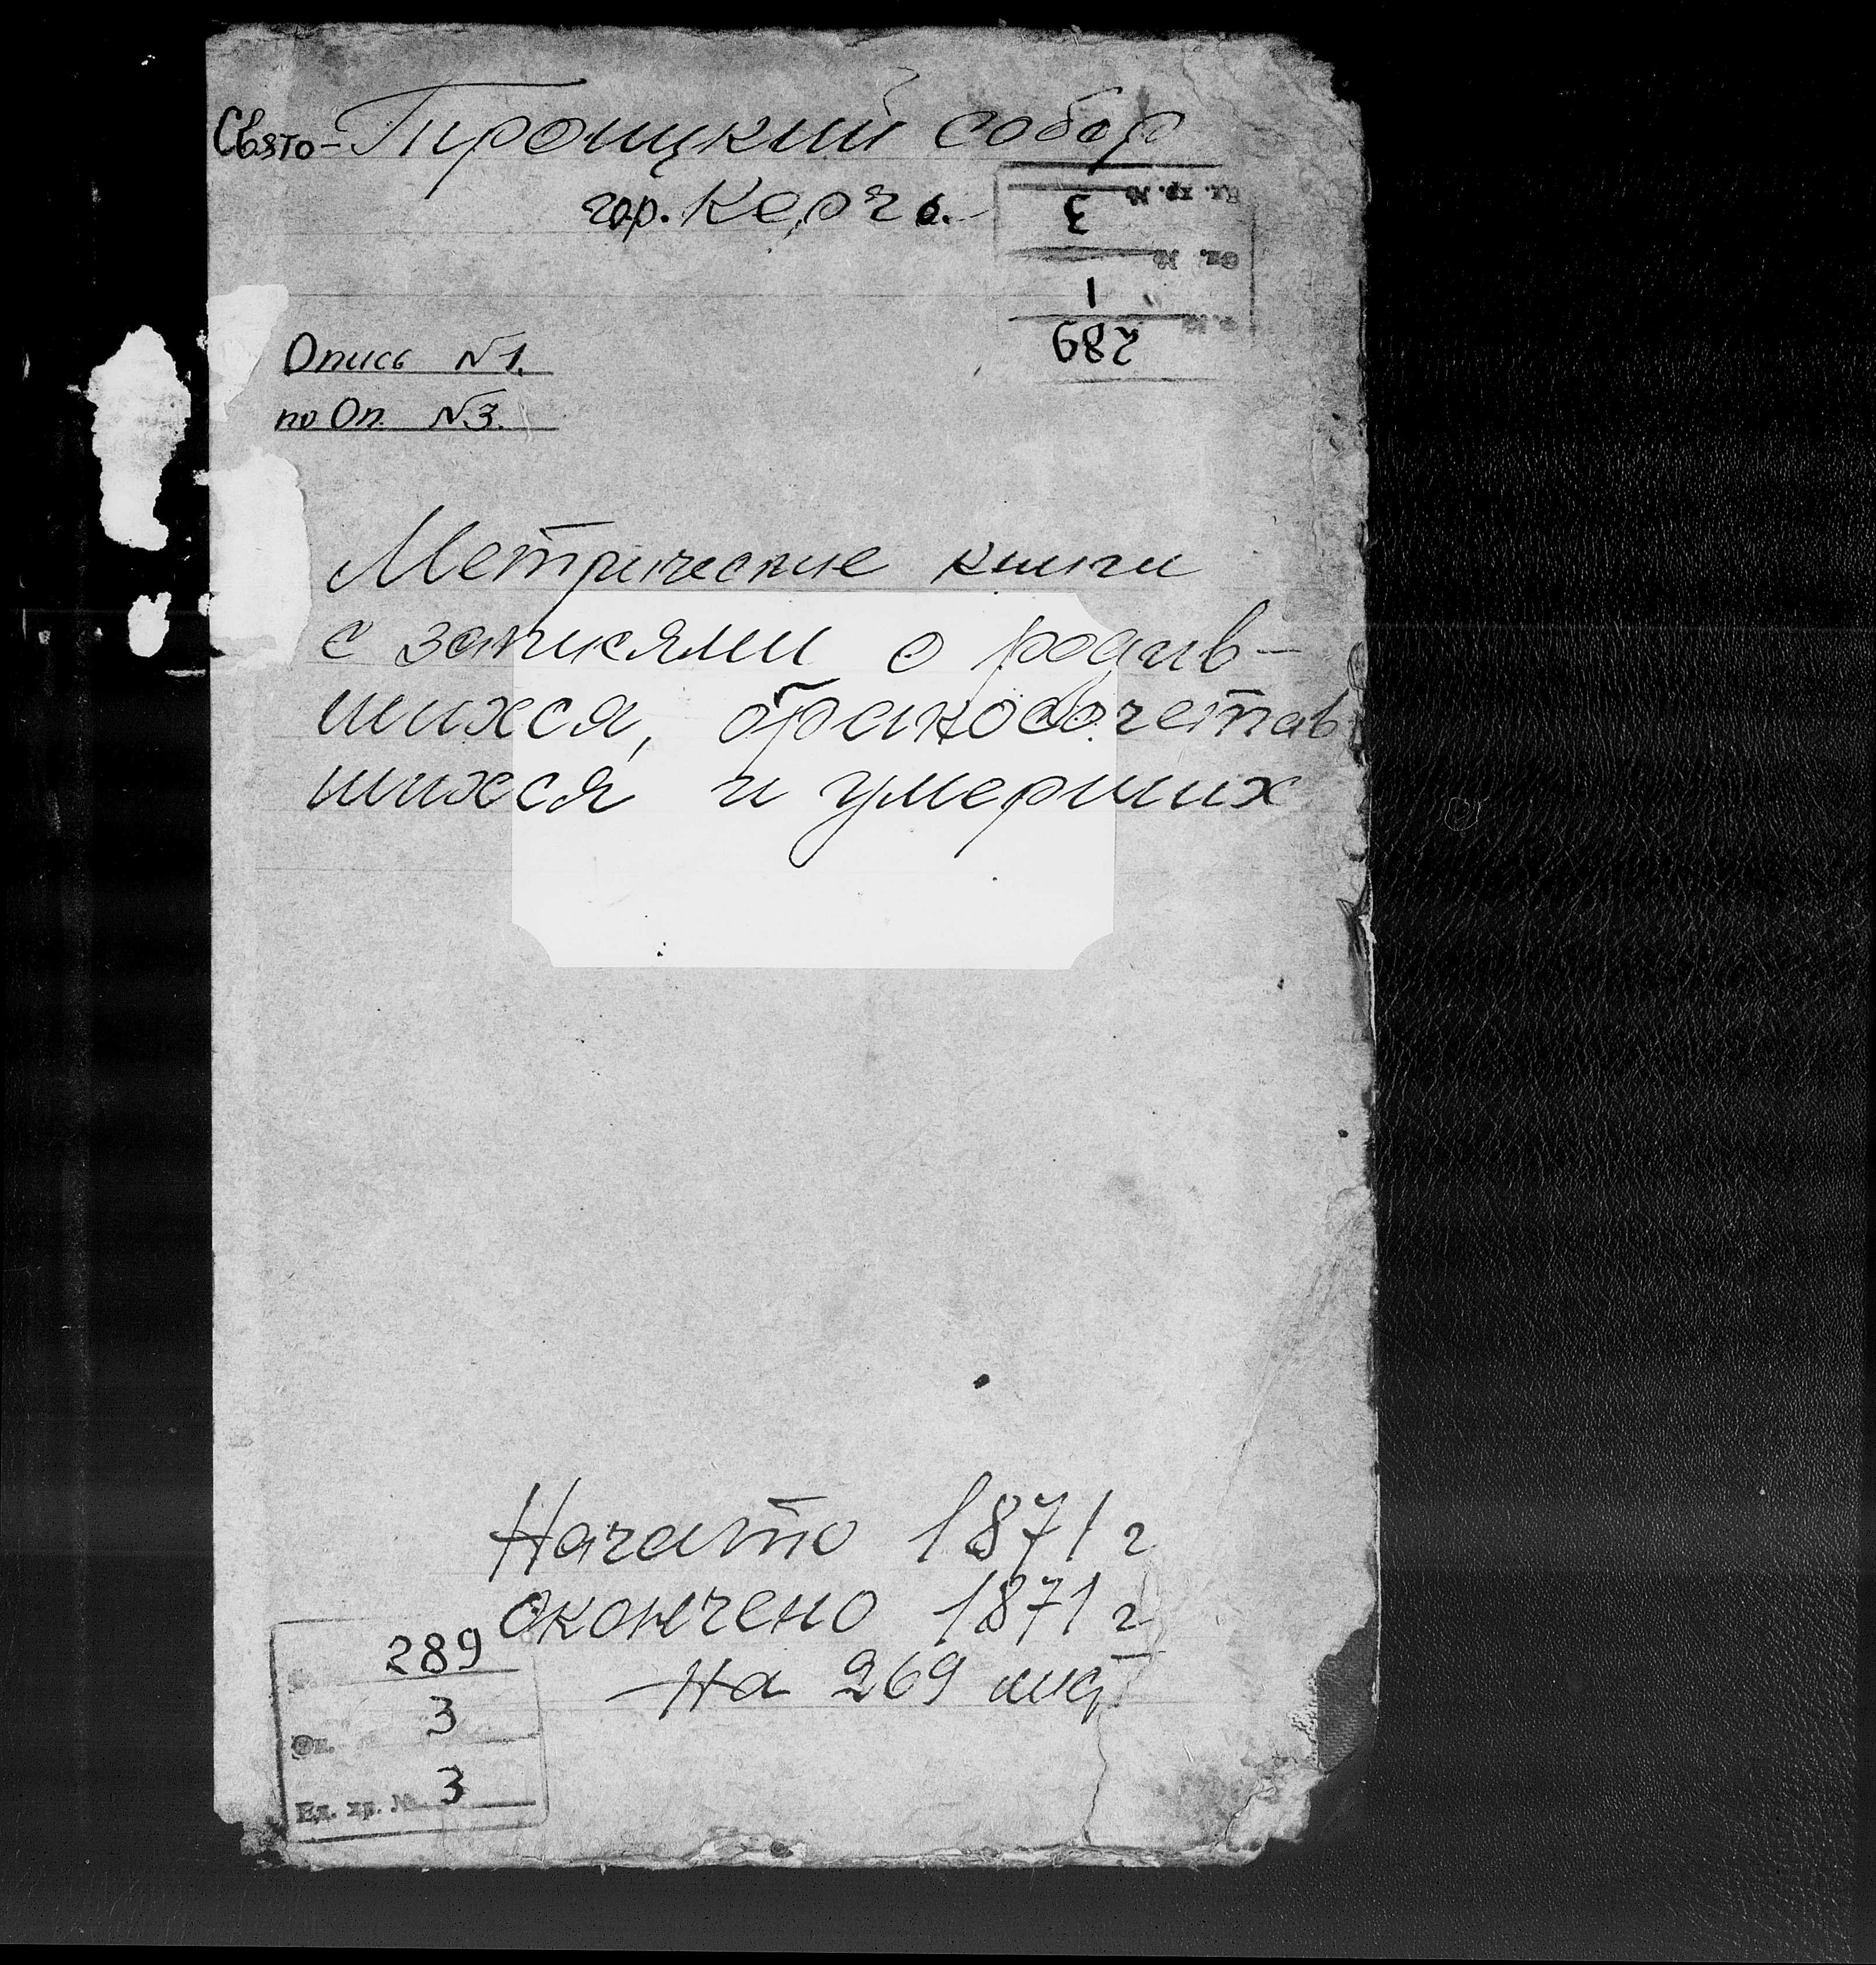 Свято-Троицкий собор
гор. Керчь.
Ед. хр. № 3
Оп. № 1
Ф. № 289
Опись №1.
по Оп. №3.
Метрические книги
с записями о родив-
шихся, бракосочетав
шихся и умерших
Начато 1871 г
окончено 1871 г
На 269 лист
289
Оп. 3
Ед. хр. № 3